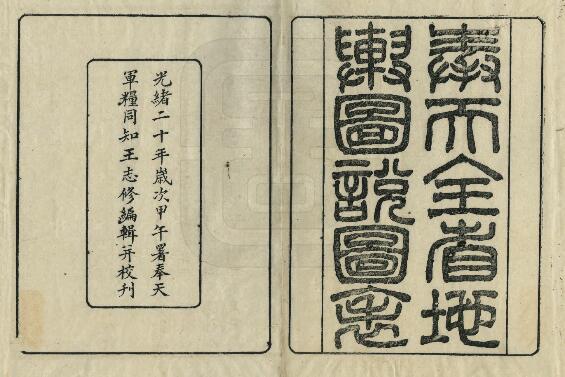 奉天全省地
輿圖說圖表
光緒二十年歲次甲午署奉天
軍糧同知王志修編輯并校刊